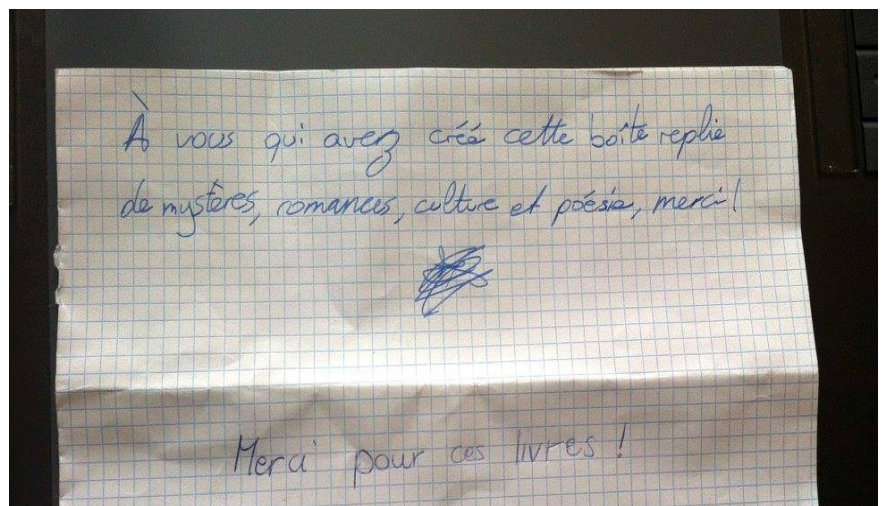 À vous qui avez créé cette boîte replie
de mystères, romances, culture et poésie, merci !
Merci pour ces livres !